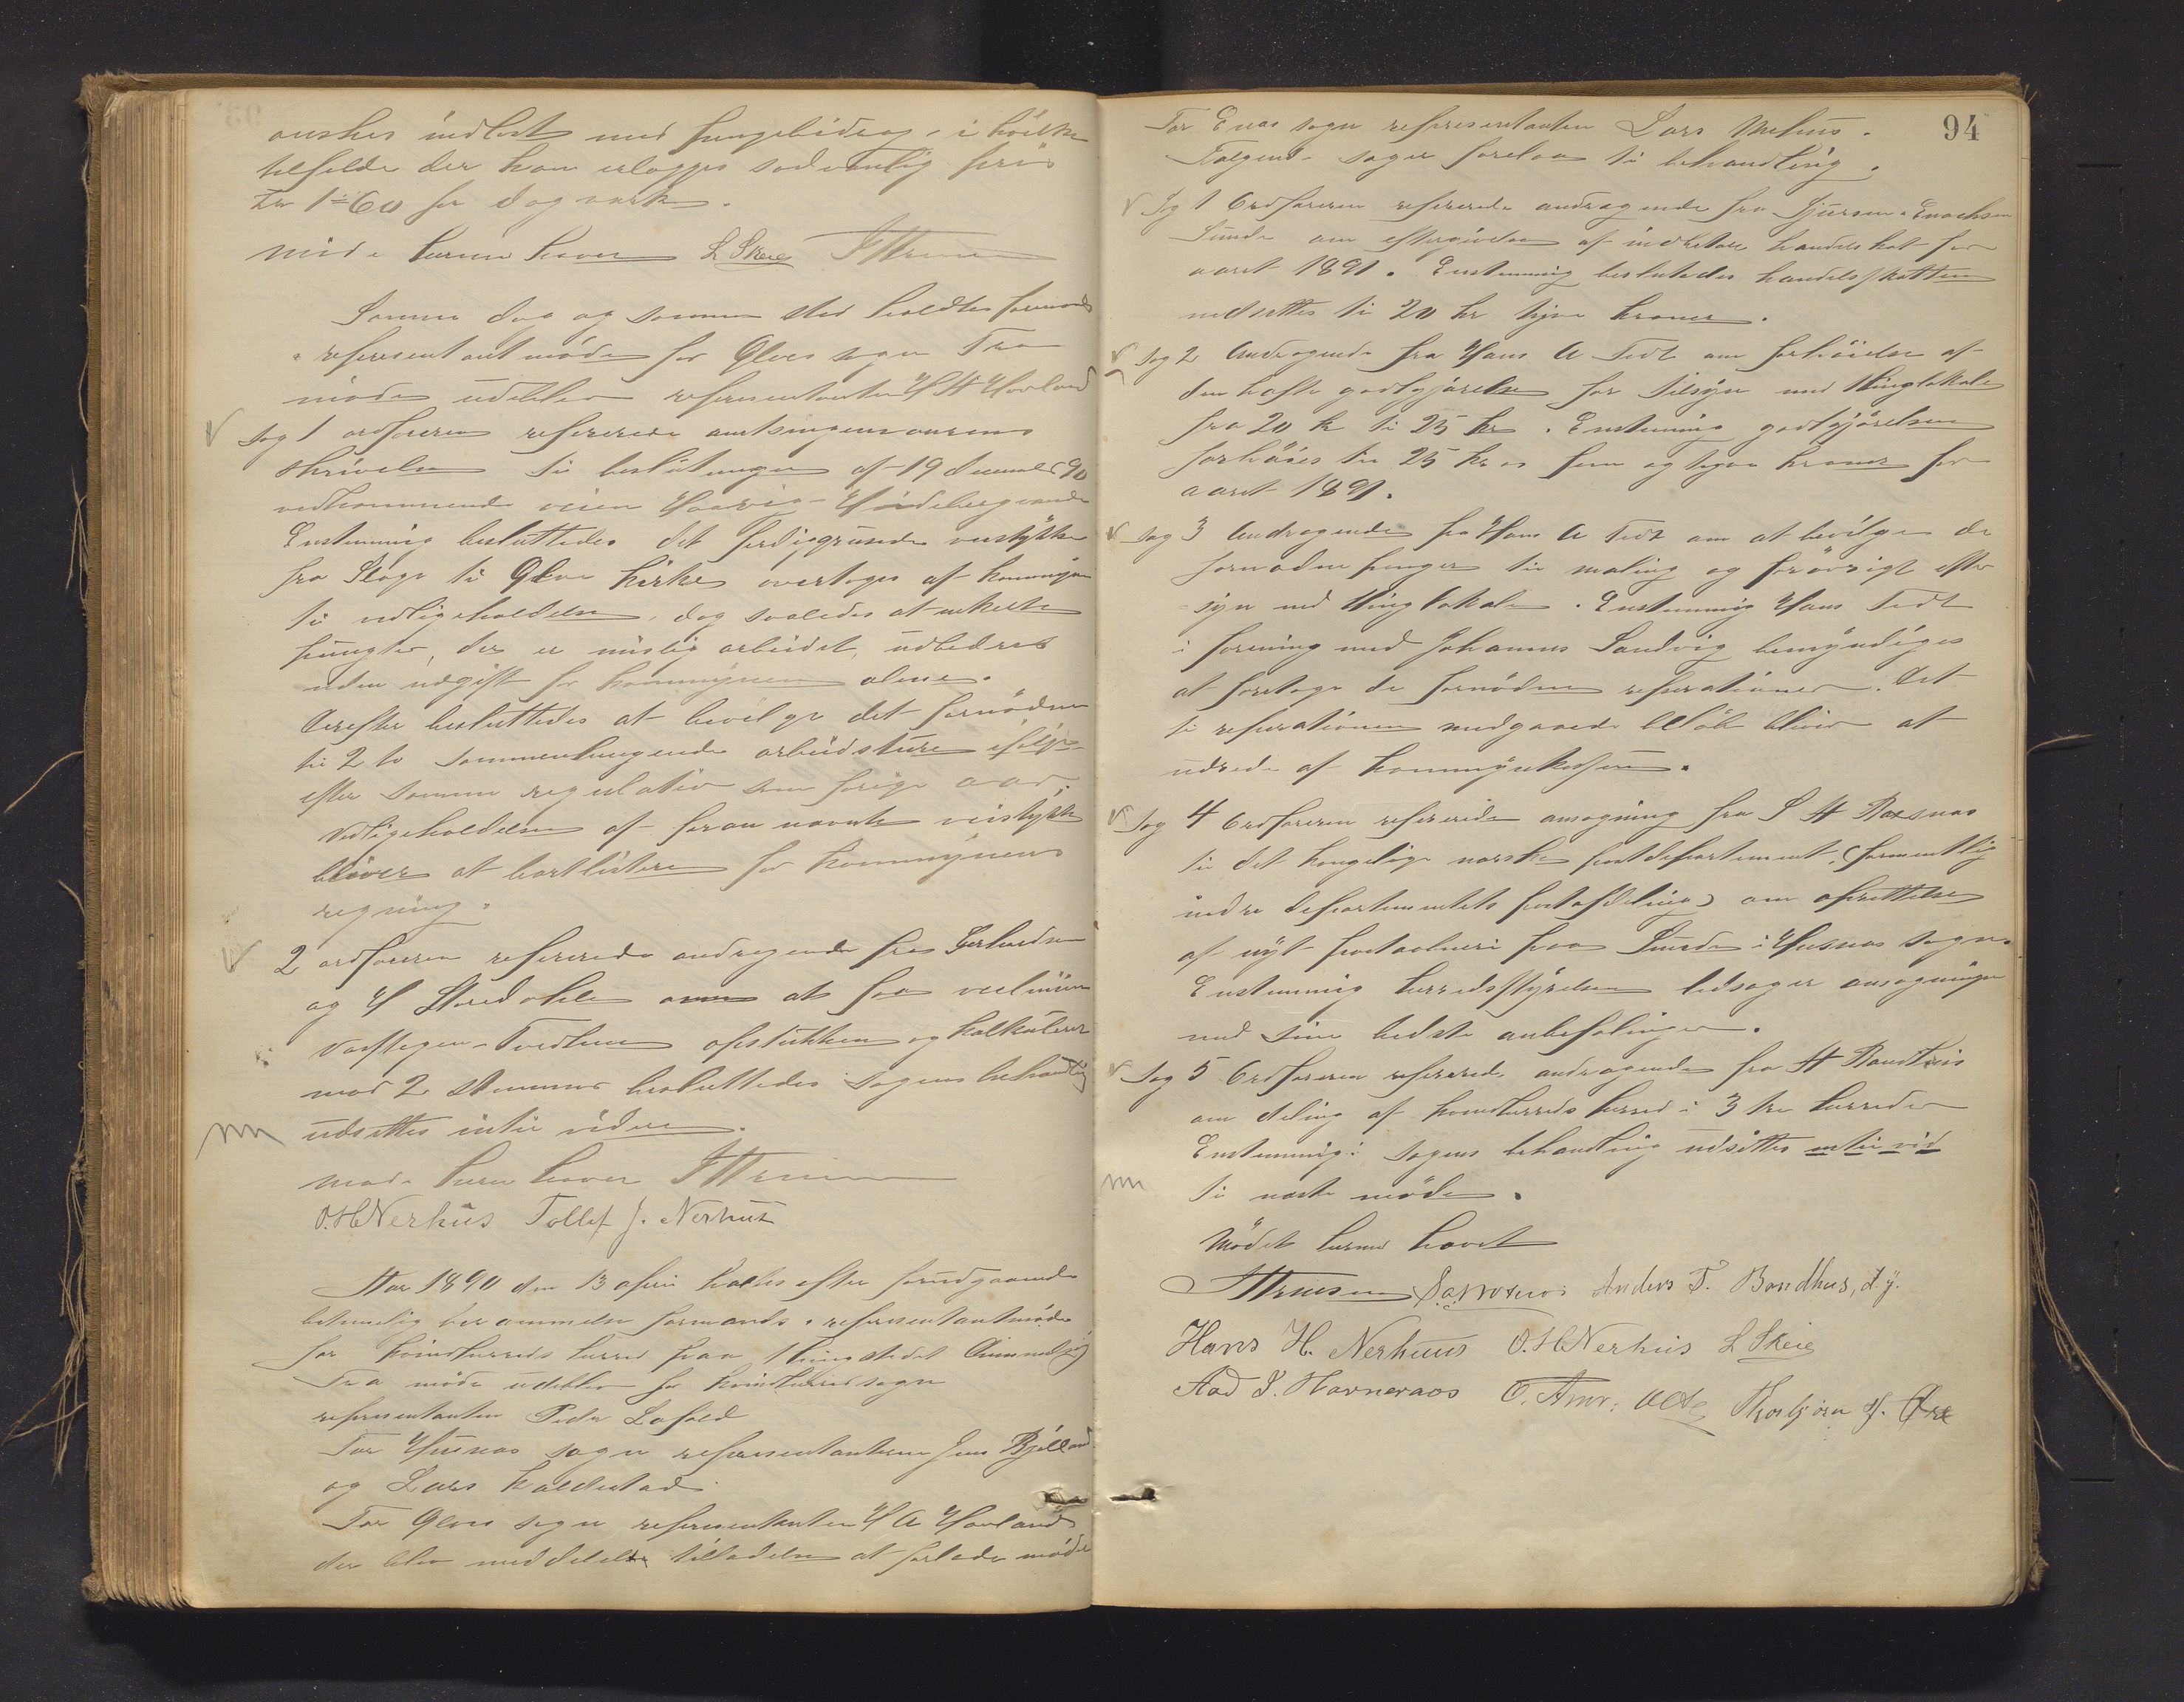 ønskes indløst med pengebidrag, i hvilke
tilfelde der kan erlægges sedvanlig pris
kr 1=60 pr dagværk.
møde herme hævet L Skeie
Samme dag og samme sted holdtes formands
representantmøde for Ølves sogn Fra
møde udeblev representanten H A Hovland
Sag 1 ordføreren refererede amtsingeniørens
skrivelse til beslutningen af 19 december 90
vedkommende veien Haavig - Hindebergvande
Enstemmig besluttedes det ferdiggjorte veistykke
fra til Ølve kirke overtages af kommunen
til vedligeholdelse, dog saaledes at enkelte
pungter, der er mislig arbeidet, udbedres
uden udgift for kommunen alene.
Derefter besluttedes at bevilge det fornødne
til 2 to sammenhengende arbeidsture
efter samme regulativ som forige aar.
Vedligeholdelsen af foran nævnte veistykke
bliver at bortlicitere for kommunens
regning.
2 ordføreren refererede andragende fra
og H Storedahle om at faa veilinien
Tvedten opstukken og kalkuleret
mod 2 stemmer besluttedes sagens behandling
udsettes intil videre.
møde herme hævet
O.H Nerhus Tollef J. Nerhus
Aar 1890 den 13 april holdtes efter forudgaaende
betimelig berammelse formands- representantmøde
for Kvindherreds herred paa thingstedet
Fra møde udeblev for Kvindherred sogn
representanten Peder Lofald
For Husnæs sogn representanterne Jens Bjelland
og Lars Kaldestad
For Ølves sogn representanten H A Hovland
der blev meddelelt tilladelse at forlade møde
94
For Enæs sogn representanten Lars Mehus.
Følgende sager forelaa til behandling.
Sag 1 Ordføreren refererede andragende fra Enochsen
Sunde om eftergivelse af handelskat for
aaret 1891. Enstemmig besluttedes handelsskatten
nedsettes til 20 kr tyve kroner.
Sag 2 Andragende fra Hans A Tedt om forhøielse af
den hafte godtgjørelse for tilsyn med thinglokale
fra 20 kr til 25 kr. Enstemmig godtgjørelsen
forhøies til 25 kr = fem og tyve kroner for
aaret 1891.
Sag 3 Andragende fra Hans A Tedt om at bevilge de
fornødne penger til maling og forøvrigt efter
syn med thinglokale. Enstemmig Hans Tedt
i forening med Johannes Sandvig bemyndiges
at foretage de fornødne reperationer. Det
til reperationen medgaaede beløb bliver at
udrede af kommunekassen.
Sag 4 Ordføreren refererede ansøgning fra S H Røssnæs
til det kongelige norske postdepartement, (formentlig
indre departementets postafdeling) om oprettelse
af nyt postaabneri paa Sunde i Husnæs sogn.
Enstemmig herredsstyrelsen ledsager ansøgningen
med sine bedste anbefalinger.
Sag 5 Ordføreren refererede andragende fra
om deling af Kvindherreds herred i 3 tre herreder
Enstemmig: sagens behandling udsettes intil vid
til næste møde.
Mødet herme hævet
Anders T. Bondhus, d.y.
Hans H. Nerhuus O.H Nerhus L Skeie
Aad S. Havneraas Thorbjørn H. Øre